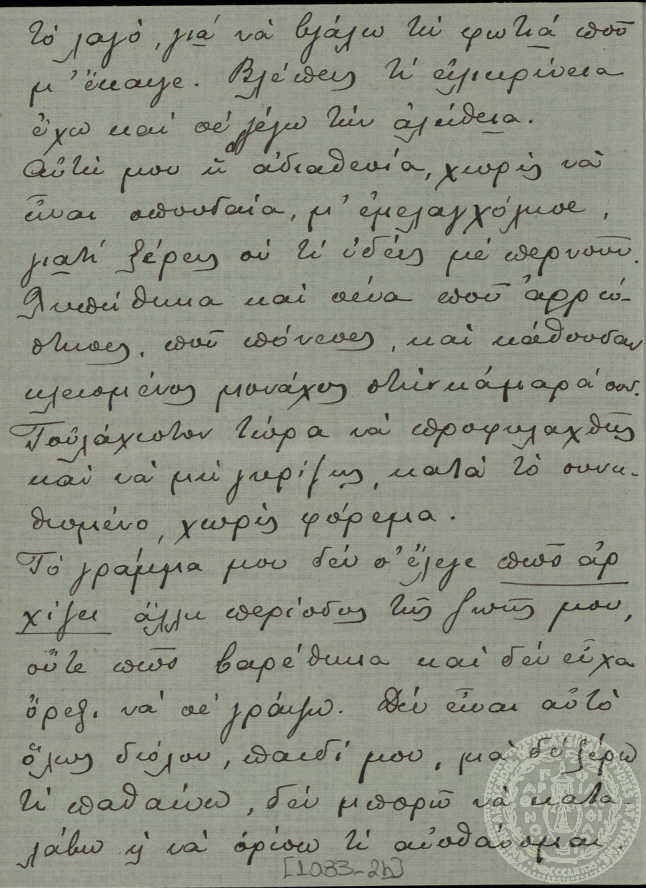 τὸ λαγό, γιά νὰ βγάλω τὴ φωτιά ποῦ
μ' ἔκαψε. Βλέπεις τί εἰλικρίνεια
ἔχω καί σέ λέγω τὴν ἀλήθεια.
Αὐτή μου ἡ ἀδιαθεσία, χωρὶς νὰ
εἶναι σπουδαία, μ' ἐμελαγχόλησε,
γιατί ξέρεις σύ τί ἰδέες μέ περνοῦν.
Λυπήθηκα καί σένα ποῦ ἀρρώ-
στησες, ποῦ πόνεσες, καί κάθουσαν
κλεισμένος μονάχος στὴν κάμαρά σου.
Τοὐλάχιστον τώρα νὰ προφυλαχθῇς
καί νὰ μὴ γυρίζῃς, κατά τὸ συνη-
θισμένο, χωρὶς φόρεμα.
Τὸ γράμμα μου δέν σ' ἔλεγε πῶς ἀρ
χίζει ἄλλη περίοδος τῆς ζωῆς μου,
οὔτε πῶς βαρέθηκα καί δέν εἶχα
ὄρεξι νὰ σέ γράψω. Δέν εἶναι αὐτὸ
ὅλως διόλου, παιδί μου, μά δέ ξέρω
τί παθαίνω, δέν μπορῶ νὰ κατα-
λάβω ἤ νὰ ὁρίσω τί αἰσθάνομαι.
[1083-2b]